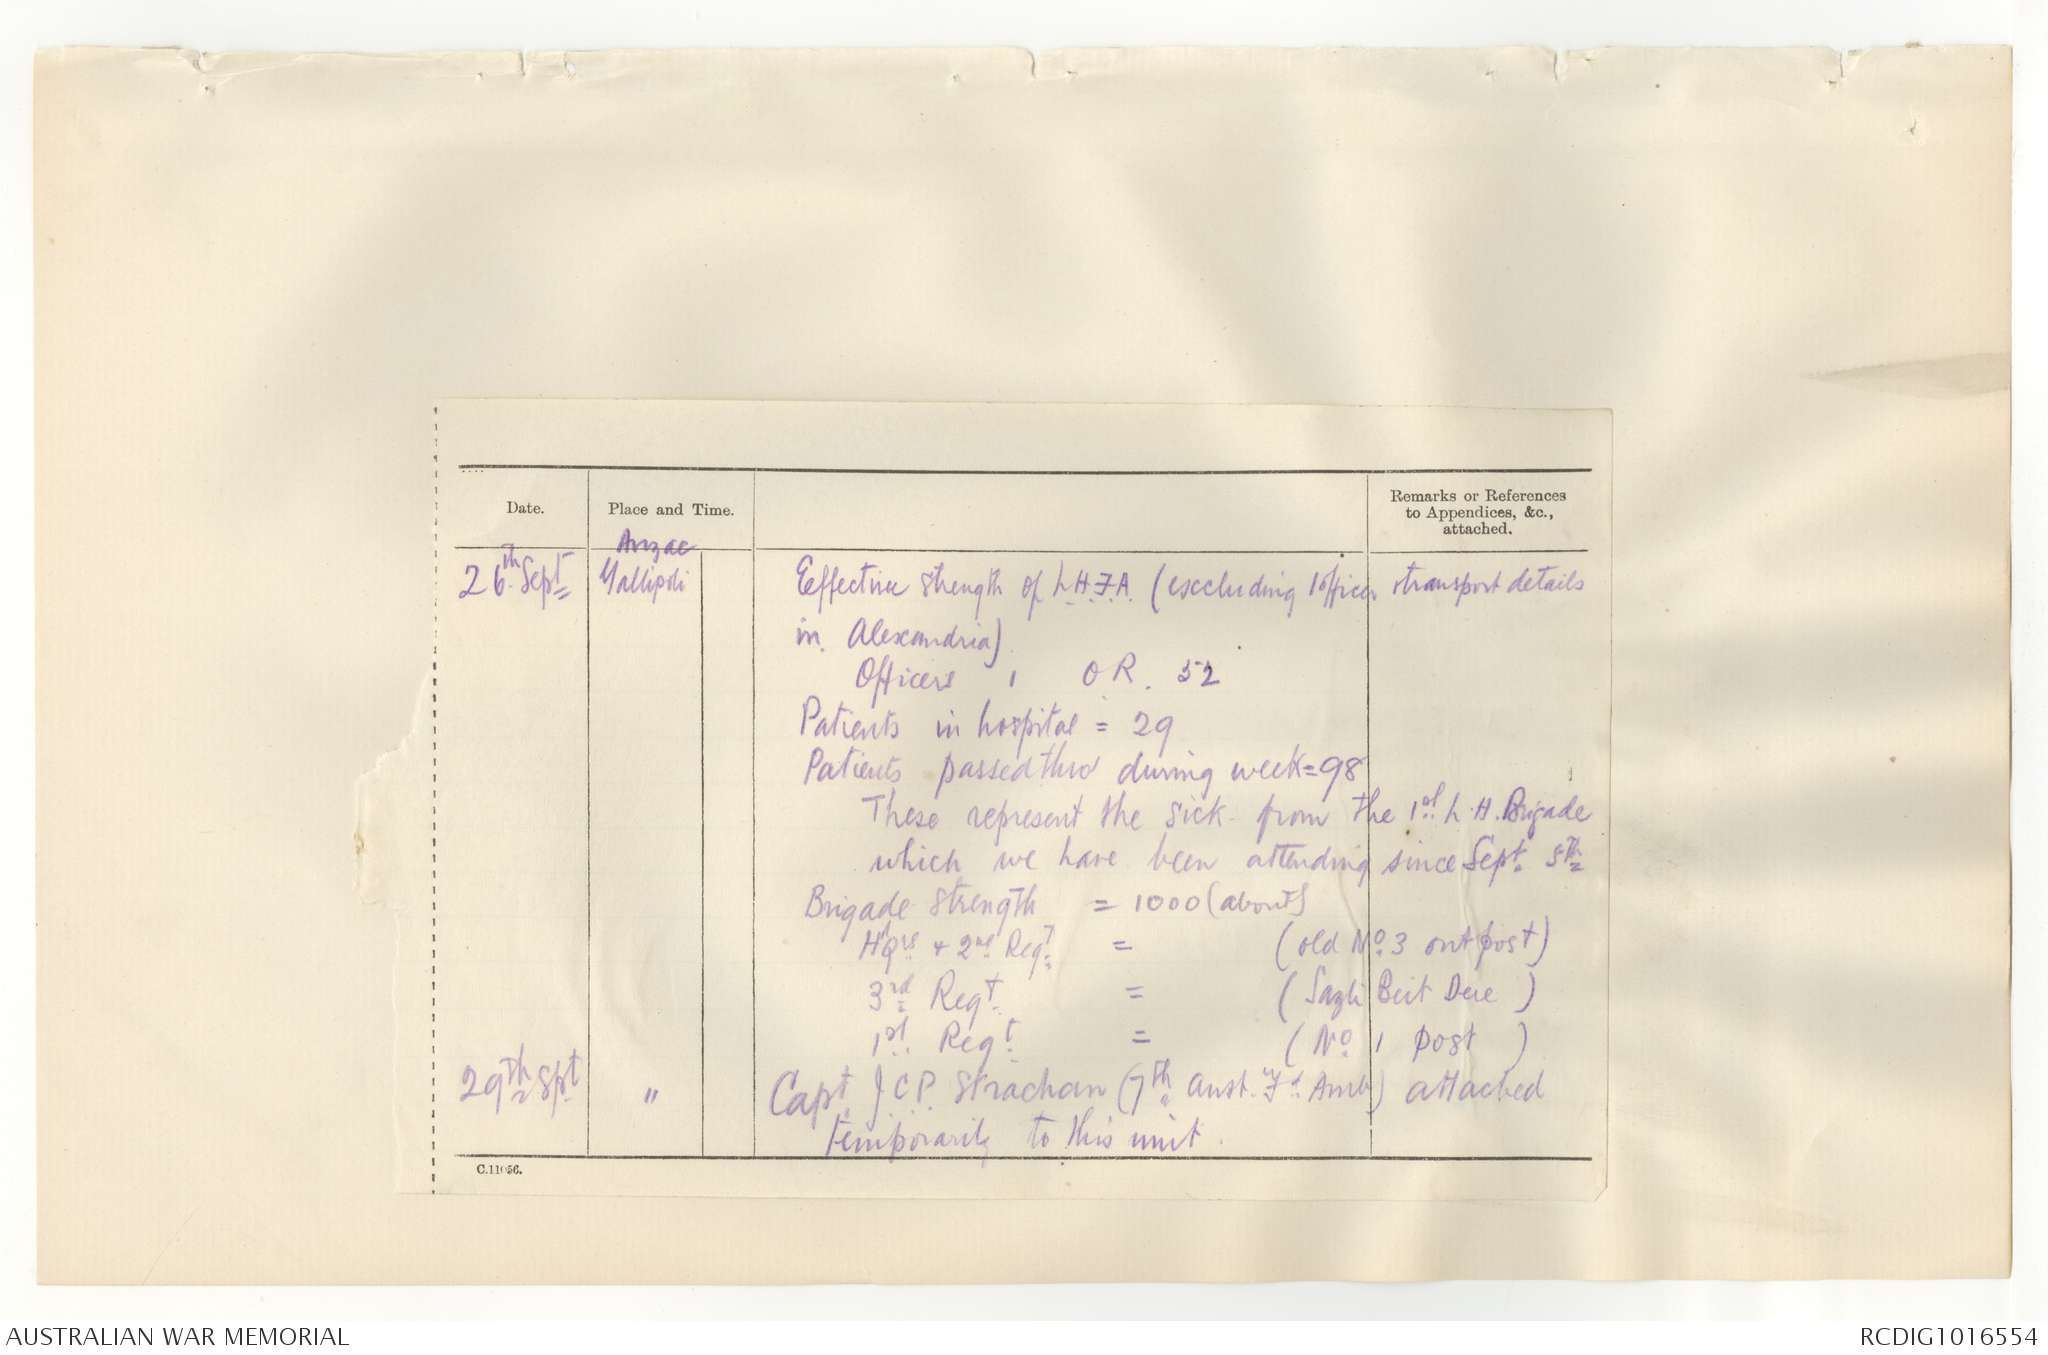 Date.
Place and Time.
Remarks or References
to Appendices, &c.,
attached.
Anzac
26th Sept Gallipoli Effective strength of L.H.F.A. (excluding 1 officer & transport details
in Alexandria)
Officers 1 O.R. 52
Patients in hospital = 29
Patients passed thro during week = 98
These represent the sick from the 1st L.H. Brigade
which we have been attending since Sept. 5th
Brigade Strength = 1000 (about)
HQrs + 2nd Regt = (old No 3 outpost)
3rd Regt = (Sazli Beit Dere)
1st Regt = (No 1 post)
29th Spt " Capt J C P. Strachan (7th Aust. Fd Amb) attached
temporarily to this unit.
C.11056.
AUSTRALIAN WAR MEMORIAL
RCDIG1016554